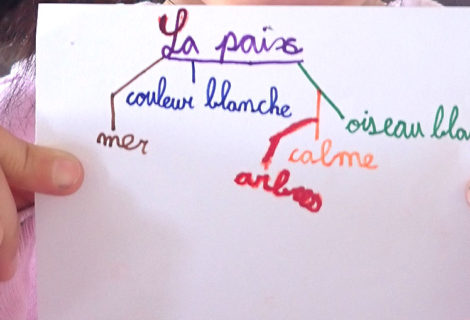 La paix
couleur blanche
mer
oiseau bla
calme
arbres